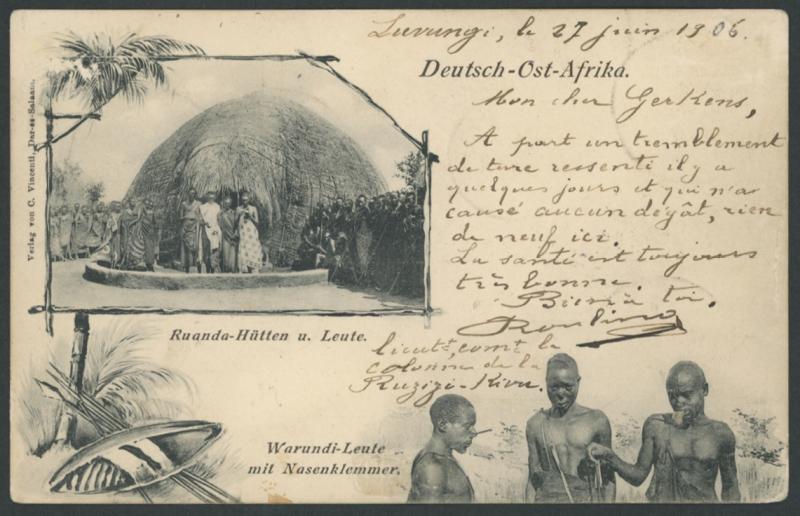 Luvungi, le 27 juin 1906.
Deutsch-Ost-Afrika.
Mon cher Gerkens,
A part un tremblement
de terre ressenti il y a
quelques jours et qui n'a
causé aucun dégât, rien
de neuf ici.
La santé est toujours
très bonne.
Bien à toi.
lieutt, comt la
colonne de la
Ruzizi-Kivu.
Verlag von C. Vincenti, Dar-es-Salaam.
Ruanda-Hütten u. Leute.
Warundi-Leute
mit Nasenklemmer.